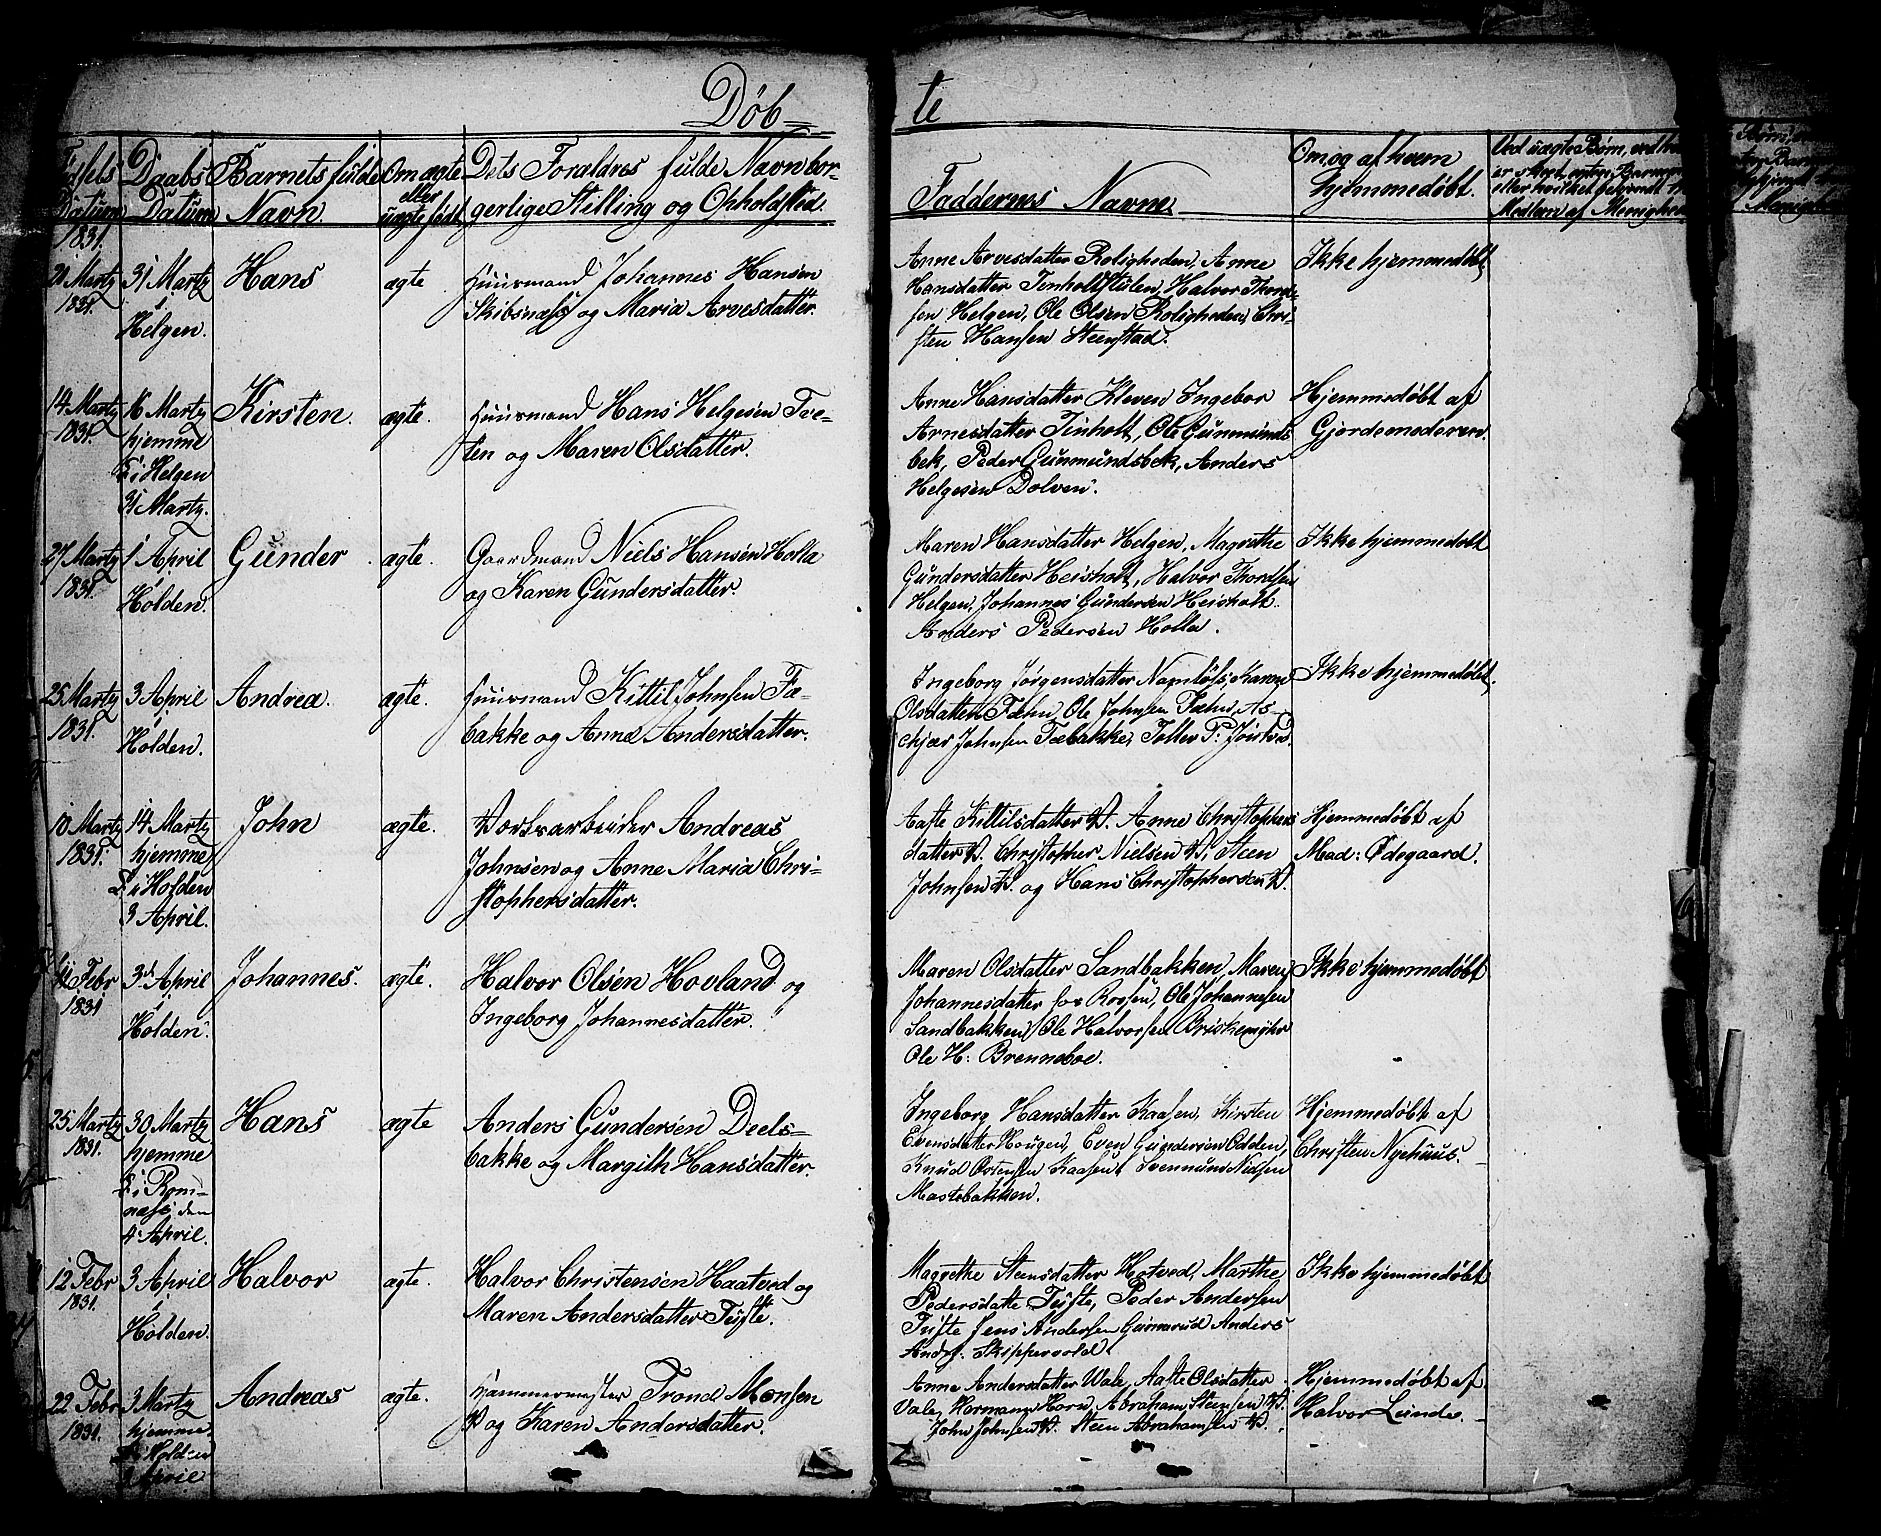 Døb-
te
Fødsels Datum
Daabs Datum
Barnets fulde Navn
Om ægte eller uægte født
Dets Forældres fulde Navn borgerlige Stilling og Opholdsted.
Faddernes Navne
Om og af hvem hjemmedøbt.
1831.
Martz
1831.
31 Martz
i
Helgen.
Hans
ægte
Huusmand Johannes Hansen
Skibsnæss og Maria Arvesdatter.
Anne Arvesdatter Roligheden, Anne
Hansdatter Tenholtstulen, Halvor Thord-
sen Helgen, Ole Olsen Roligheden, Chri-
sten Hansen Steenstad.
Ikke hjemmedøbt
14 Martz
1831.
16 Martz
hjemme
& i Helgen
31 Martz.
Kirsten.
ægte.
Huusmand Hans Helgesen Tve-
ten og Maren Olsdatter.
Anne Hansdatter Kleven Ingebor
Arnesdatter Tinholt, Ole Gunmunds
bek, Peder Gunmundsbek, Anders
Helgesen Dolven.
Hjemmedøbt af
Gjordemoderen.
27 Martz
1831.
1 April
i
Holden.
Gunder
ægte.
Gaardmand Niels Hansen Holla
og Karen Gundersdatter.
Maren Hansdatter Helgen, Magrethe
Gundersdatter Heisholt, Halvor Thordsen
Helgen, Johannes Gundersen Heisholt.
Anders Pedersen Holla.
Ikke hjemmedøbt
25 Martz
1831.
3 April
i
Holden.
Andrea.
ægte.
Huusmand Kittil Johnsen Fæ-
bakke og Anne Andersdatter.
Ingeborg Jørgensdatter Karen
Olsdatter Fæhn, Ole Johnsen Fæhn, As-
Johnsen Fæbakke, Toller P:
Ikke hjemmedøbt.
10 Martz
1831.
14 Martz
hjemme
& i Holden
3 April.
John
ægte.
Værksarbeider Andreas
Johnsen og Anne Maria Chri-
stophersdatter.
Aaste Kittilsdatter V. Anne Christophers
datter V. Christopher Nielsen V, Steen
Johnsen V. og Hans Christophersen V.
Hjemmedøbt af
Mad: Ødegaard.
11 Febr
1831
3de April
i
Holden.
Johannes.
ægte.
Halvor Olsen Hovland og
Ingeborg Johannesdatter.
Maren Olsdatter Sandbakken, Maren
Johannesdatter Ole Johannesen
Sandbakken, Ole Halvorsen
Ole H: Brenneboe.
Ikke hjemmedøbt
25 Martz
1831.
30 Martz
hjemme
& i Rom-
næss den
4: April.
Hans
ægte
Anders Gundersen Deels-
bakke og Margith Hansdatter.
Ingeborg Hansdatter Kaasen, Kirsten
Evensdatter Hougen, Even Gundersen Odden,
Knud Kaasen, Svenmund Nielsen
Mastebakken.
Hjemmedøbt af
Christen Nyehuus.
12 Febr
1831.
3 April
i
Holden.
Halvor
ægte.
Halvor Christensen Haatved og
Maren Andersdatter Tufte.
Magrethe Steensdatter Hotved, Marthe
Pedersdatte Tufte, Peder Andersen
Tufte Jens Andersen Anders
Skippervold.
Ikke hjemmedøbt
22 Febr
1831.
3 Martz
hjemme
& i Holden
April
Andreas
ægte.
Hammermester Trond Monsen
V og Karen Andersdatter.
Anne Andersdatter Vale, Aaste Olsdatter
Vale, Hermann Horn, Abraham Steensen V.
John Johnsen V. Steen Abrahamsen V.
Hjemmedøbt af
Halvor Lunde.